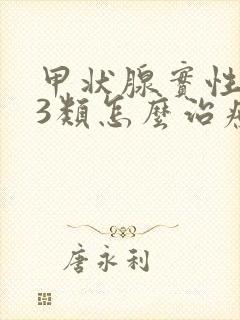 甲状腺實性
3類怎麼治
唐永利